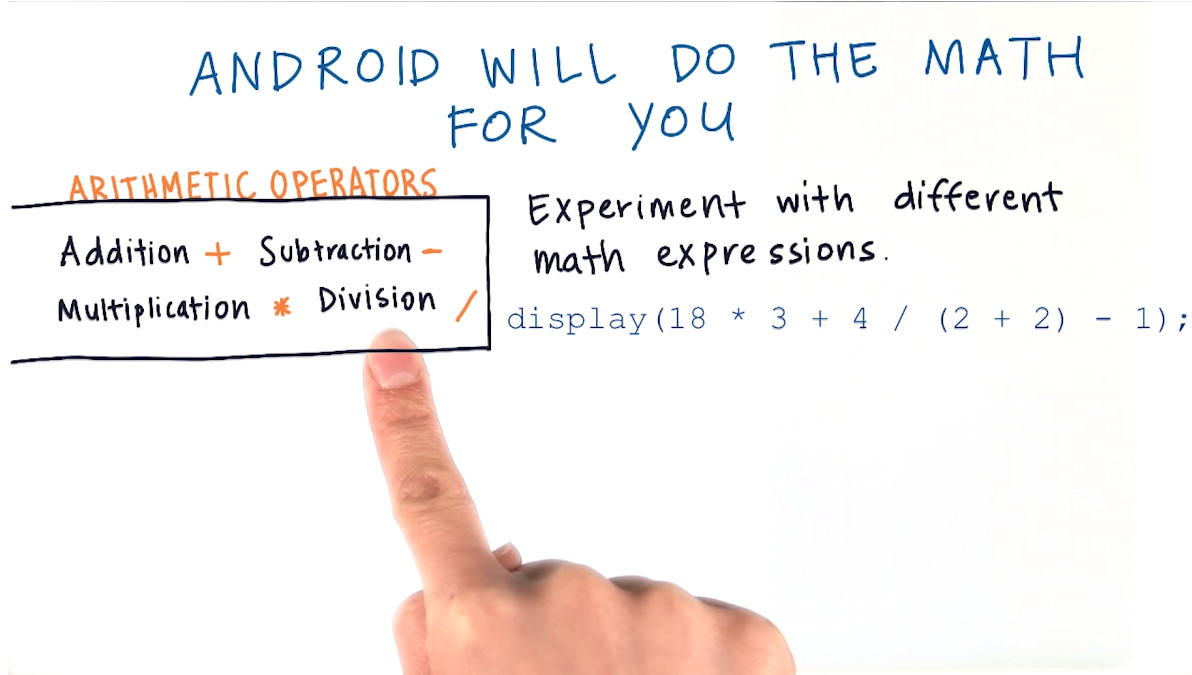 ANDROID WILL DO THE MATH
FOR YOU
ARITHMETIC OPERATORS
Addition + Subtraction -
Multiplication * Division /
Experiment with different
math expressions.
display(18 * 3 + 4 / (2 + 2) - 1);